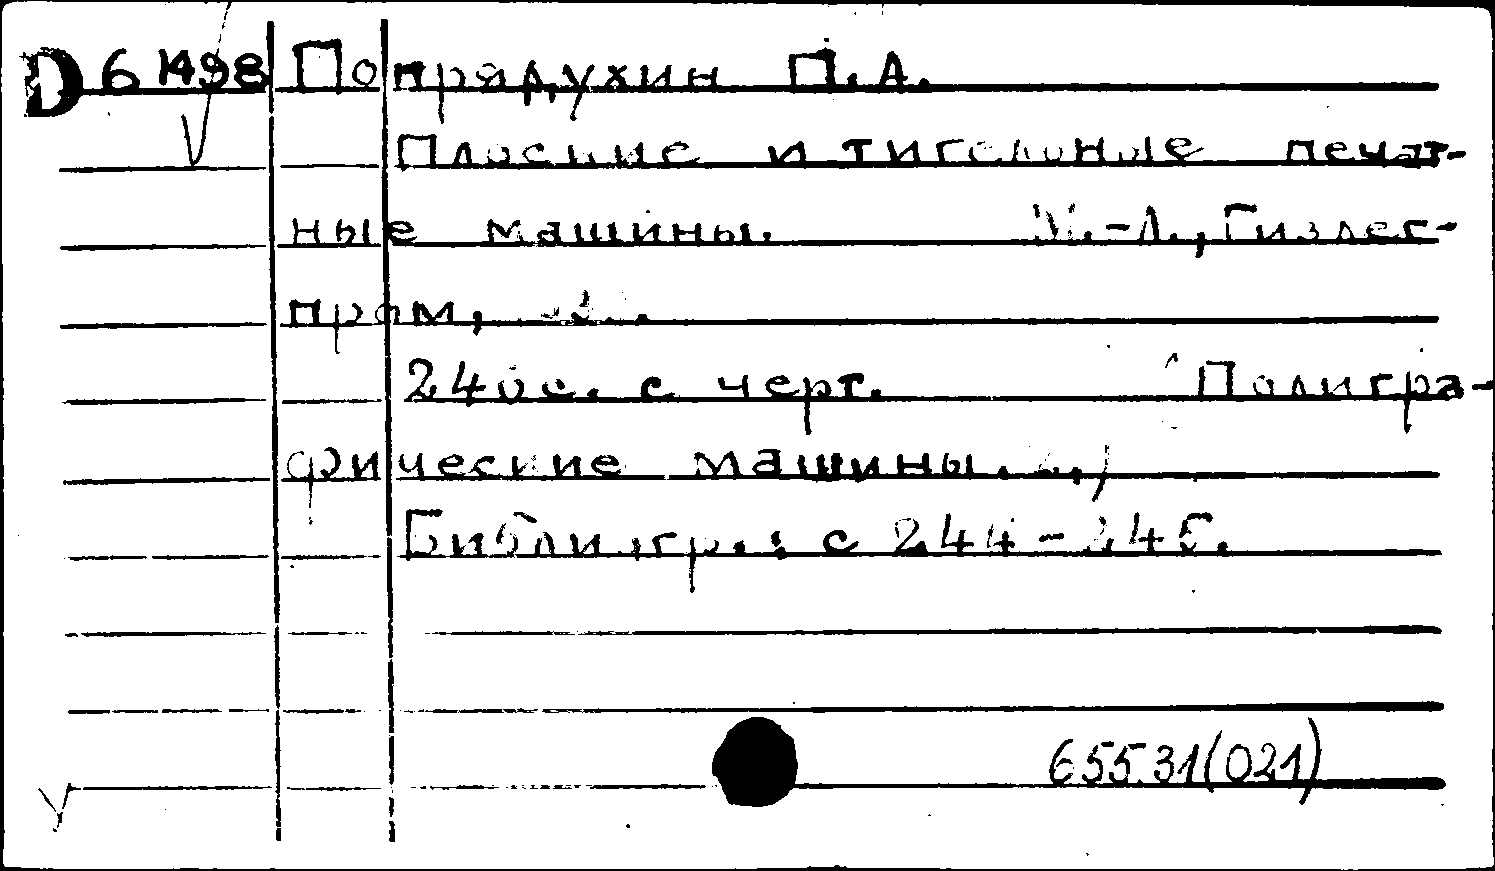 D 6 1498 Попрядухин П.А.
Плоские и тигельные печат-
ные машины. М.-Л., Гизлег-
пром,
с. с черт. Полигра-
фические машины.
Библиогр.: с 244-245.
655.31(021)